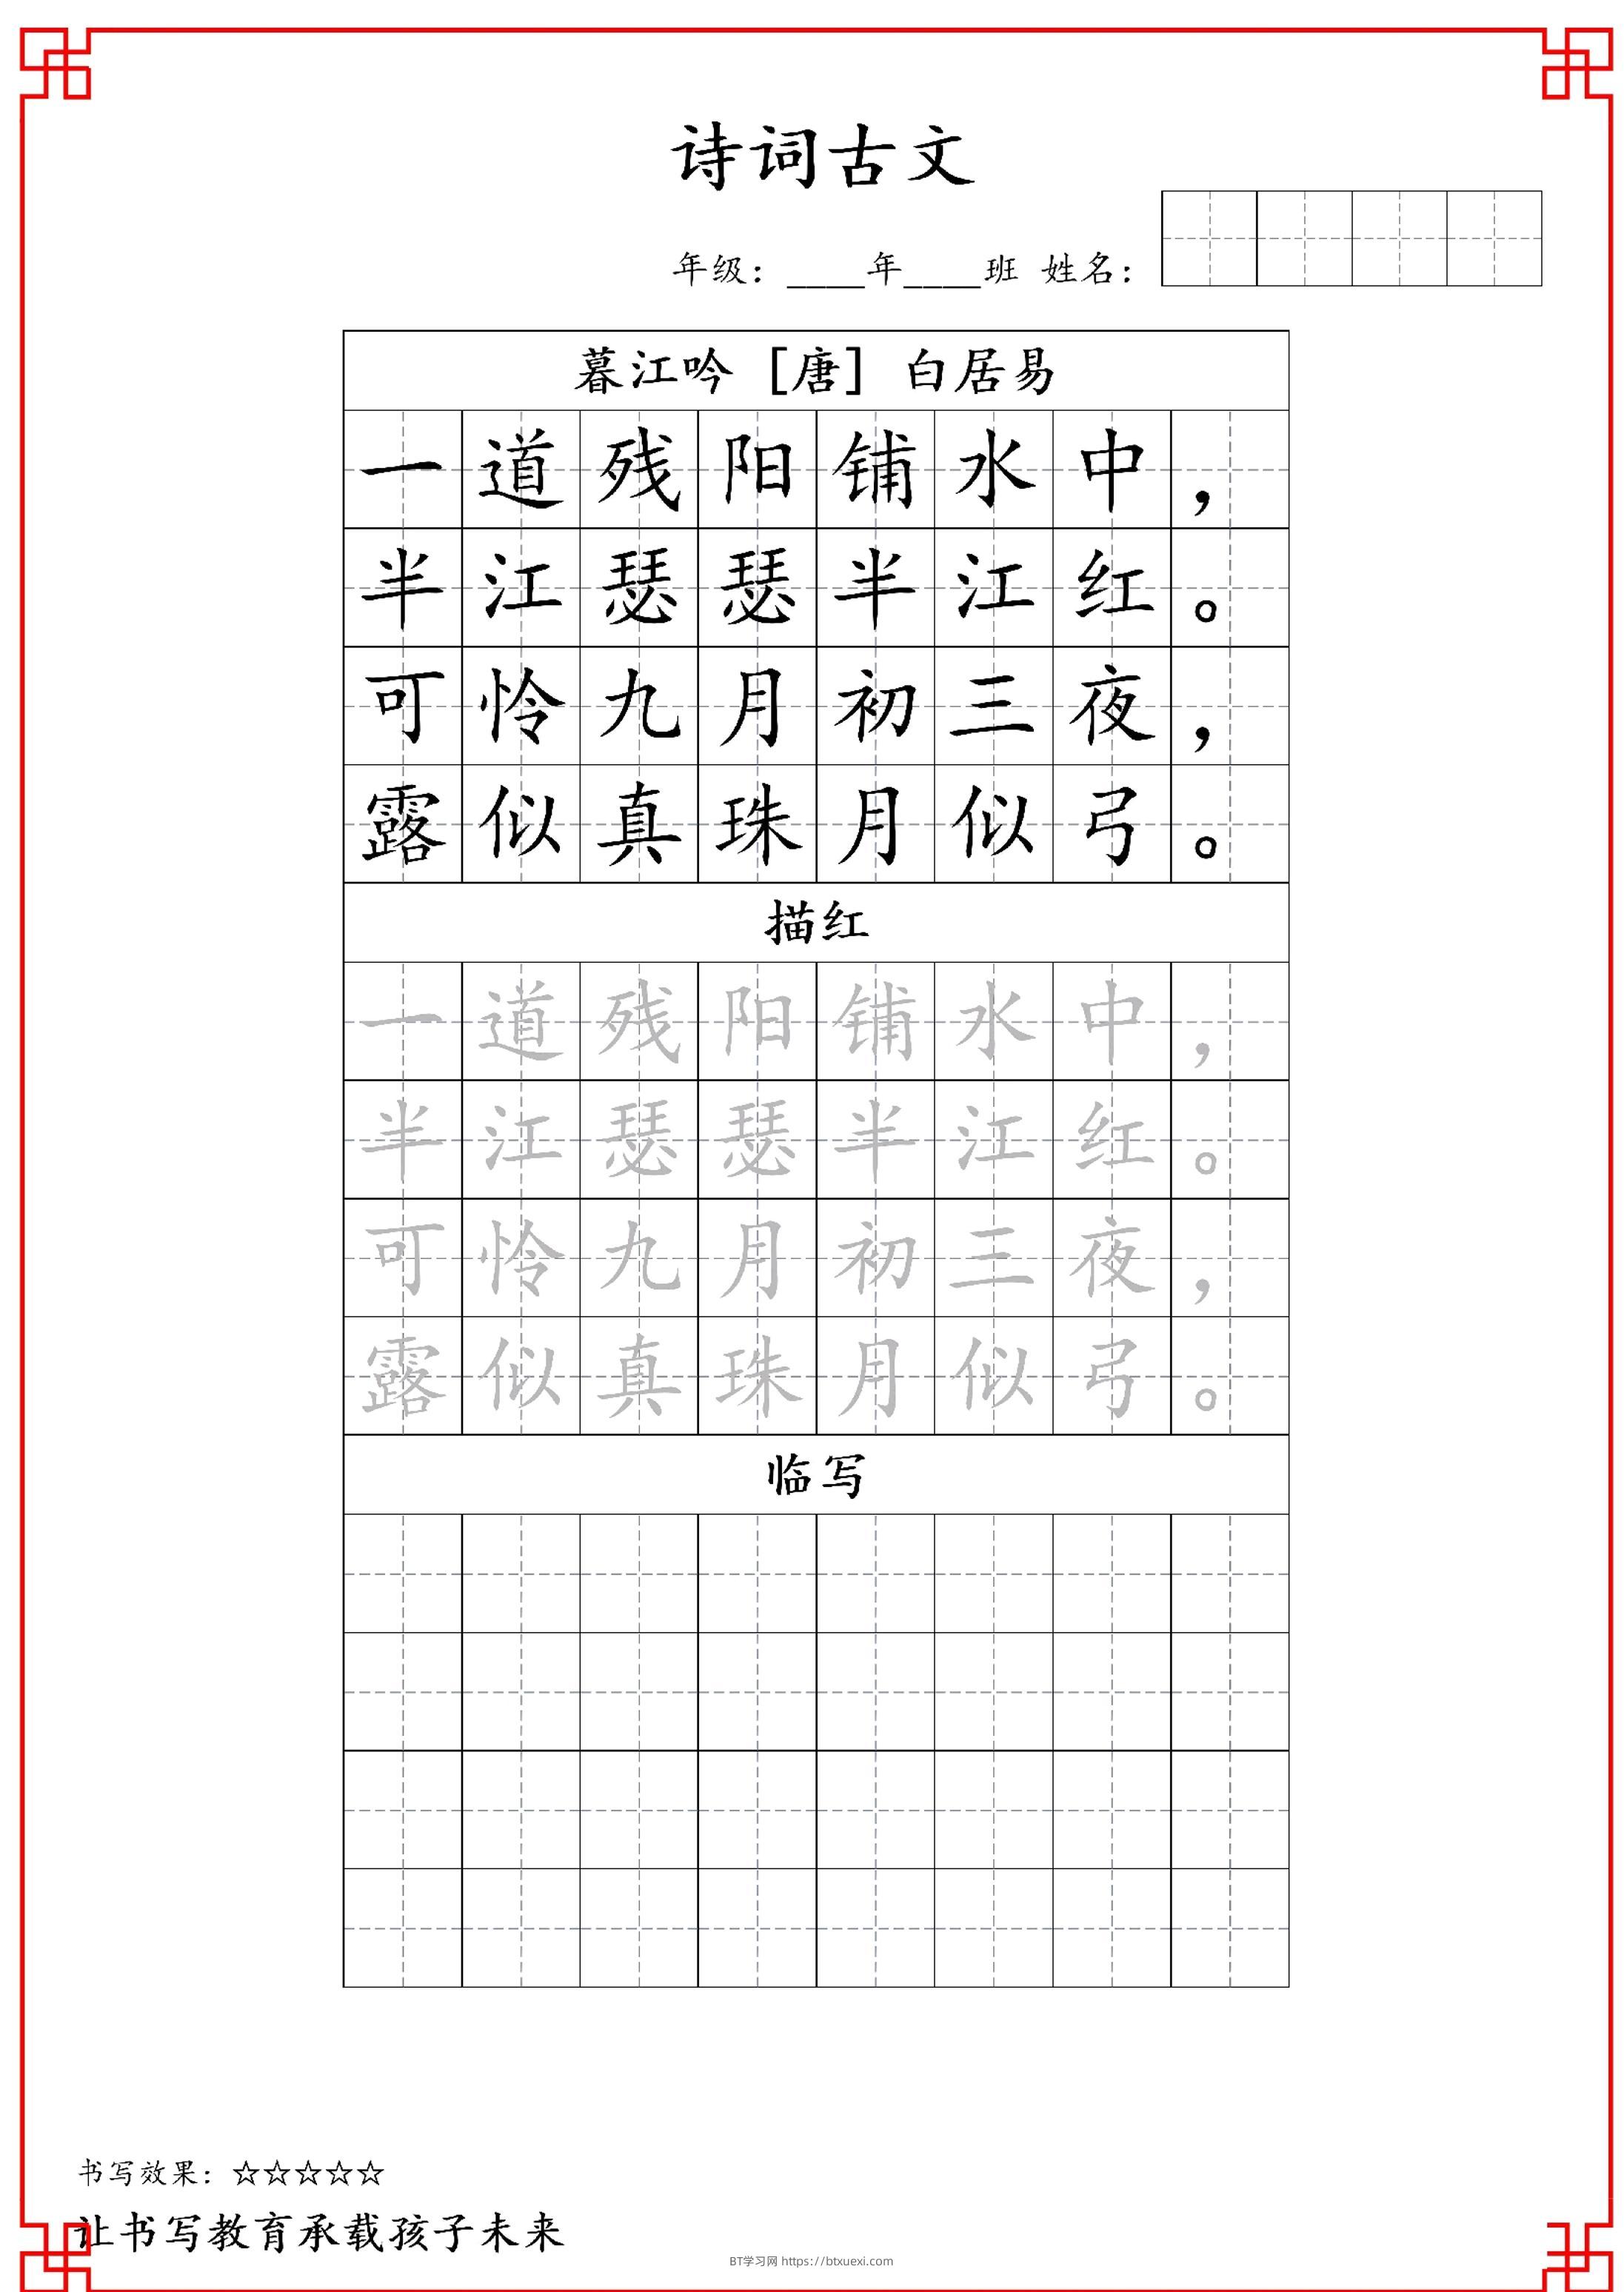 诗词古文
年级：____年____班 姓名：
暮江吟［唐］白居易
一道残阳铺水中，
半江瑟瑟半江红。
可怜九月初三夜，
露似真珠月似弓。
描红
一道残阳铺水中，
半江瑟瑟半江红。
可怜九月初三夜，
露似真珠月似弓。
临写
书写效果：☆☆☆☆☆
让书写教育承载孩子未来
BT学习网 https://btxuexi.com